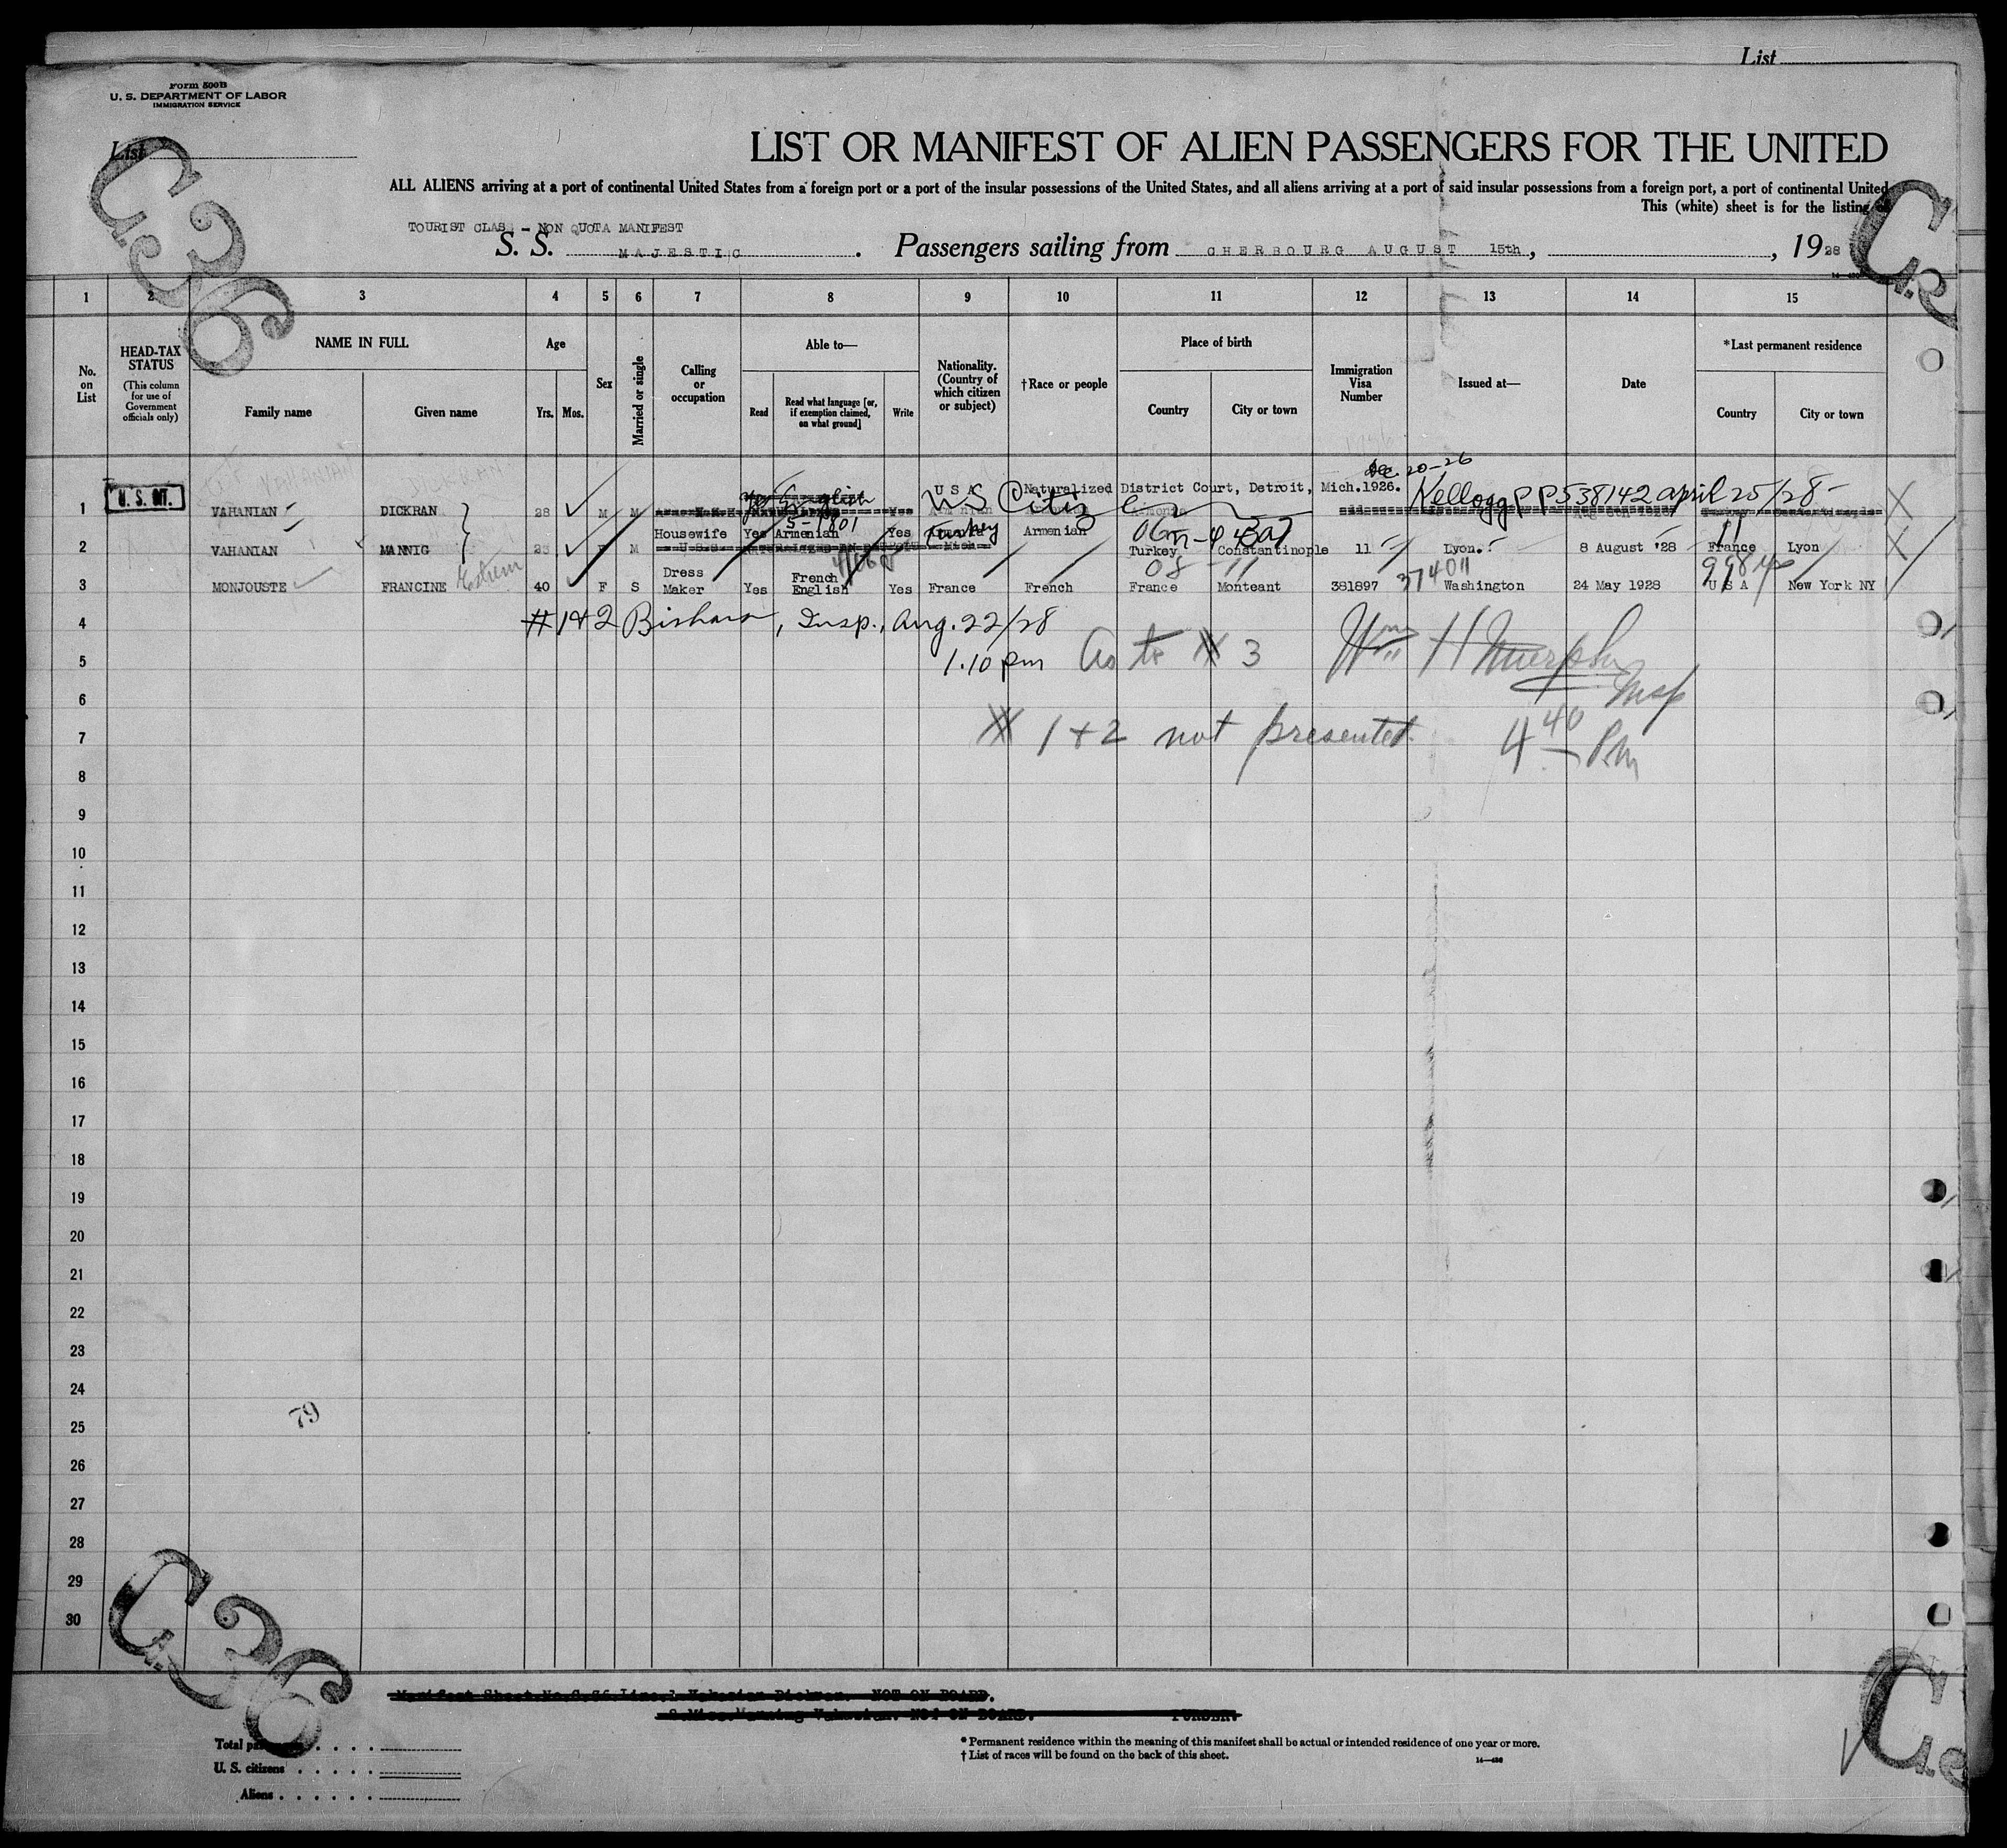 List
Form 500B
U. S. DEPARTMENT OF LABOR
IMMIGRATION SERVICE
List
C36
LIST OR MANIFEST OF ALIEN PASSENGERS FOR THE UNITED
ALL ALIENS arriving at a port of continental United States from a foreign port or a port of the insular possessions of the United States, and all aliens arriving at a port of said insular possessions from a foreign port, a port of continental United
This (white) sheet is for the listing
TOURIST CLASS - NON QUOTA MANIFEST
S. S. MAJESTIC. Passengers sailing from CHERBOURG AUGUST 15th, , 1928
1 2 3 4 5 6 7 8 9 10 11 12 13 14 15
No. on List
HEAD-TAX STATUS
(This column for use of Government officials only)
NAME IN FULL
Family name Given name
Age
Yrs. Mos.
Sex
Married or single
Calling or occupation
Able to—
Read
Read what language [or, if exemption claimed, on what ground]
Write
Nationality. (Country of which citizen or subject)
†Race or people
Place of birth
Country City or town
Immigration Visa Number
Issued at—
Date
*Last permanent residence
Country City or town
Dec. 20-26
U S A Naturalized District Court, Detroit, Mich.1926.
1 U. S. CIT. VAHANIAN DICKRAN 28 M M English US Citiz Kellogg PP538142 april 25/28-
5-1801
Housewife Yes Armenian Yes Turkey Armenian
2 VAHANIAN MANNIG F M Turkey Constantinople 11 Lyon. 8 August '28 France Lyon
3 MONJOUSTE FRANCINE 40 F S Dress Maker Yes French English Yes France French France Monteant 381897 374011 Washington 24 May 1928 U S A New York NY
4 #1+2 Bishara, Insp., Aug. 22/28
5 1.10 pm As to # 3 Wm H Murphy
6 Insp
7 # 1+2 not presented. 4 40 P.m
8
9
10
11
12
13
14
15
16
17
18
19
20
21
22
23
24
79
25
26
27
28
29
30
C36
NOT ON BOARD.
NOT ON BOARD. PURSER.
Total passengers
U. S. citizens
Aliens
* Permanent residence within the meaning of this manifest shall be actual or intended residence of one year or more.
† List of races will be found on the back of this sheet.
14—430